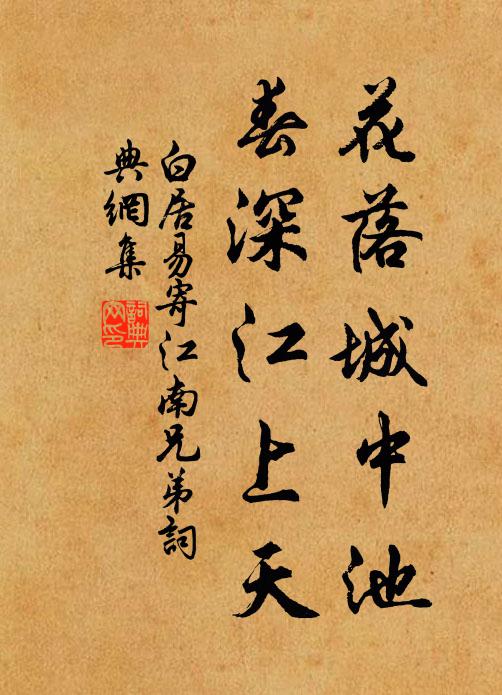 花落城中池
春深江上天
白居易寄江南兄弟詞
典網集
詞典
网印